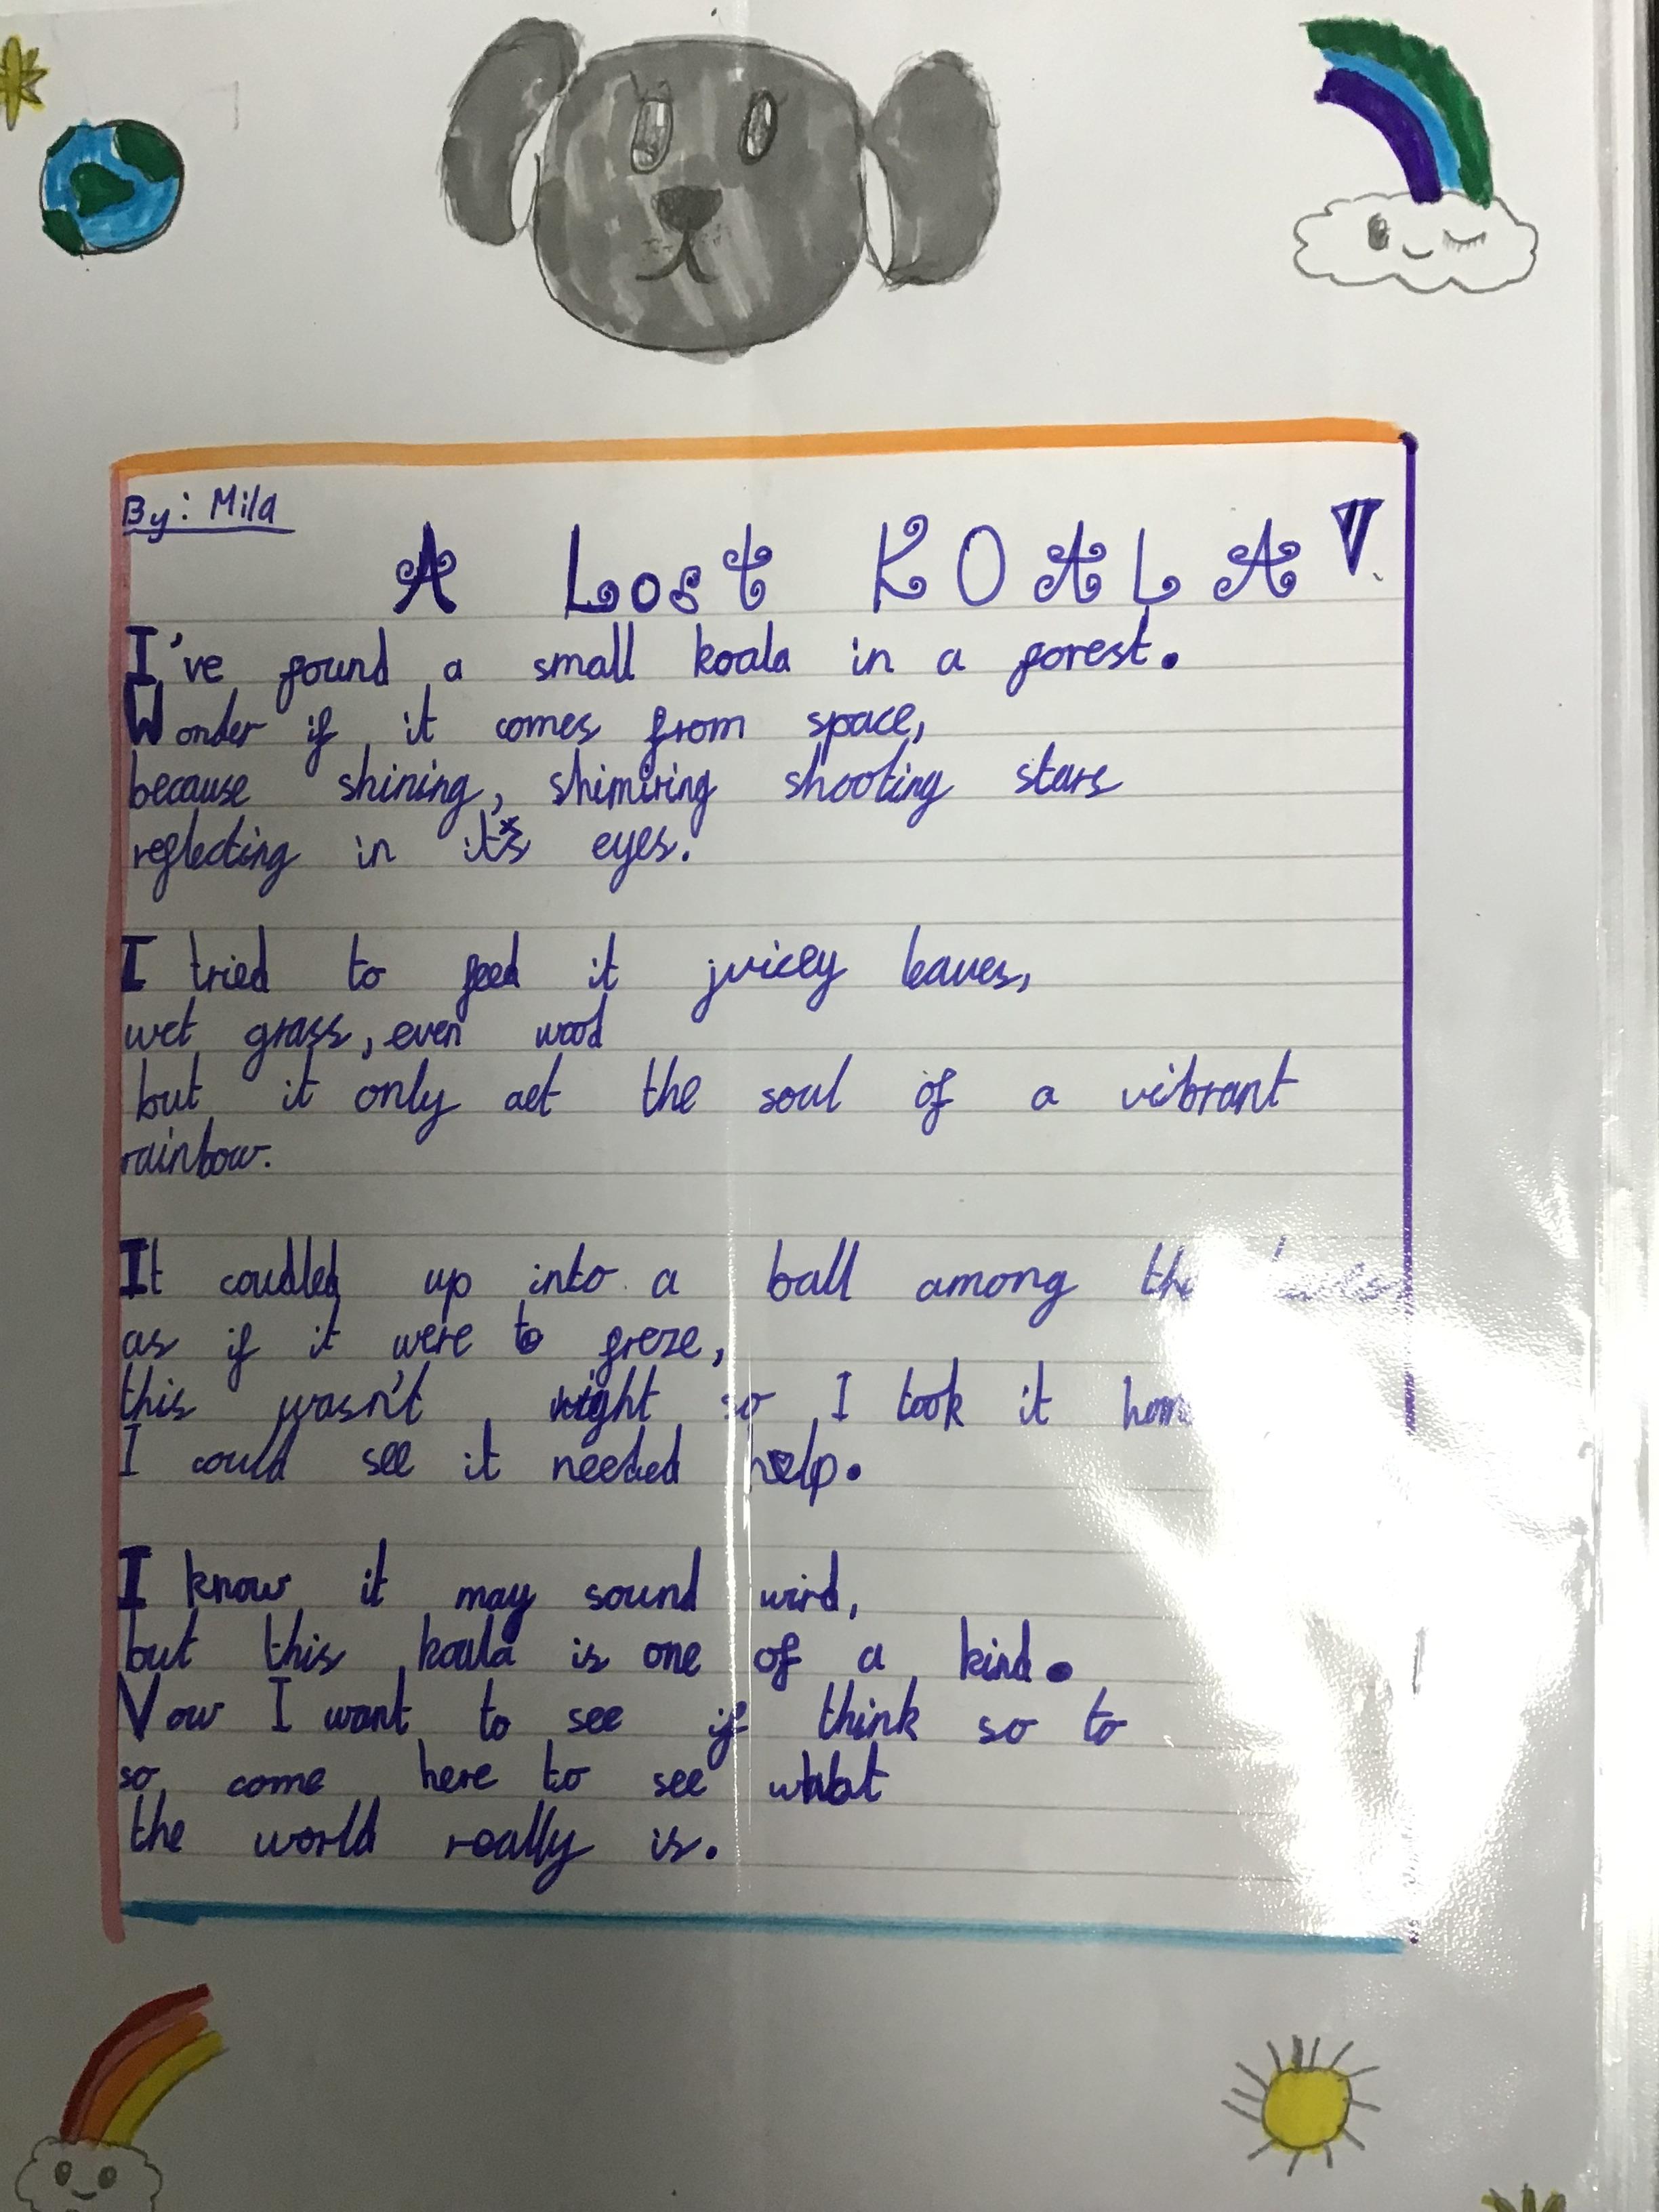 By: Mila
A Lost KOALA
I've found a small koala in a forest.
Wonder if it comes from space,
because shining, shimiring shooting stars
reflecting in its eyes.
I tried to feed it juicey leaves,
wet grass, even wood
but it only aet the soul of a vibrant
rainbow.
It coudled up into a ball among the
as if it were to freze,
this wasn't right so I took it
I could see it needed help.
I know it may sound wird,
but this koala is one of a kind.
Vow I want to see if think so to
so come here to see what
the world really is.